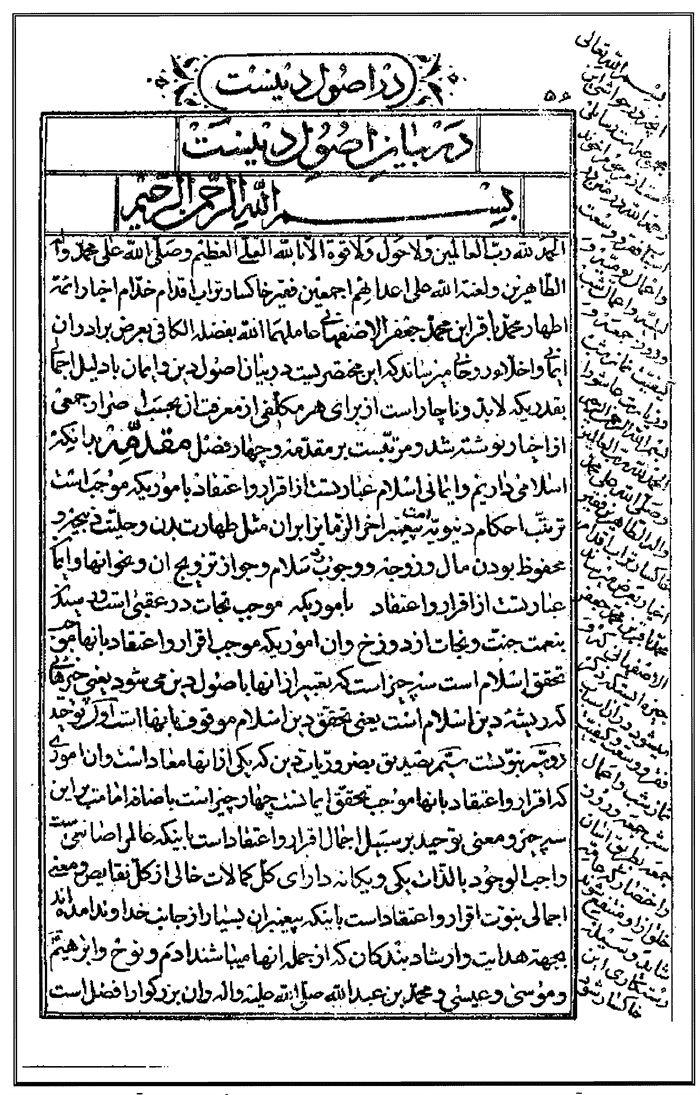 در اصول دینست
۵۶
در بیان اصول دینست
بسم الله الرحمن الرحیم
الحمد لله رب العالمین ولا حول ولا قوة الا بالله العلی العظیم وصلی الله علی محمد و آله
الطاهرین ولعنة الله علی اعدائهم اجمعین فقیر خاکسار تراب اقدام خدام اخبار ائمه
اطهار محمد باقر ابن محمد جعفر الاصفهانی عاملهما الله بفضله الکافی بعرض برادران
ایمانی و اخلاء روحانی میرساند که این مختصریست در بیان اصول دین و ایمان با دلیل اجمالی
بقدریکه لابد و ناچار است از برای هر مکلفی از معرفت آن بحسب اصرار جمعی
از اخیار نوشته شد و مرتبست بر مقدمه و چهار فصل مقدمه بدانکه
اسلامی داریم و ایمانی اسلام عبارتست از اقرار و اعتقاد باموریکه موجب است
ترتب احکام دنیویه امت پیغمبر آخر الزمان بر آن مثل طهارت بدن و حلیت ذبیحه و
محفوظ بودن مال و زوجه و وجوب رد سلام و جواز تزویج آن و نحو آنها و ایمان
عبارتست از اقرار و اعتقاد باموریکه موجب نجات در عقبی است و رسیدن
بنعمت جنت و نجات از دوزخ و آن اموریکه موجب اقرار و اعتقاد بآنها موجب
تحقق اسلام است سه چیز است که تعبیر از آنها باصول دین می شود یعنی چیزهائی
که ریشه دین اسلام است یعنی تحقق دین اسلام موقوف بآنها است اول توحید
دویم نبوتست سیم تصدیق بضروریات دین که یکی از آنها معاد است و آن اموری
که اقرار و اعتقاد بآنها موجب تحقق ایمانست چهار چیز است باضافه امامت بر این
سه چیز و معنی توحید بر سبیل اجمال اقرار و اعتقاد است باینکه عالم را صانعیست
واجب الوجود بالذات یکی و یگانه دارای کل کمالات خالی از کل نقایص و معنی
اجمالی نبوت اقرار و اعتقاد است باینکه پیغمبران بسیار از جانب خداوند آمده‌اند
بجهة هدایت و ارشاد بندکان که از جمله آنها میباشند آدم و نوح و ابرهیم
و موسی و عیسی و محمد بن عبد الله صلی الله علیه و اله و آن بزرکوار افضل است
بسم الله تعالی
بسم الله الرحمن الرحیم
الحمد لله رب العالمین
وصلی الله علی محمد
واله الطاهرین فقیر
خاکسار تراب اقدام
اخیار بعرض میرساند
محمد باقر بن محمد جعفر
الاصفهانی که فقر
نماز شب و اعمال
شب جمعه و روز
جمعه بطریق آسان
رستکاری این
خاکسار شود